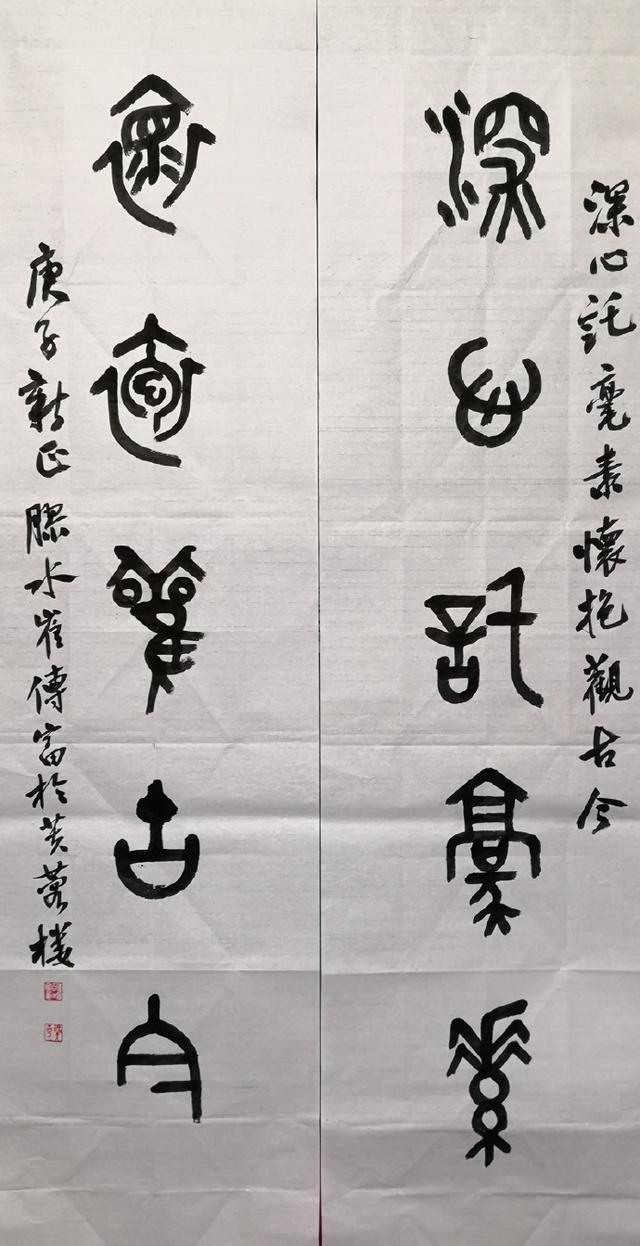 深心託毫素懷抱觀古今
深心託豪素
褱抱雚古今
庚子新正膠水崔傳富於芙蓉樓